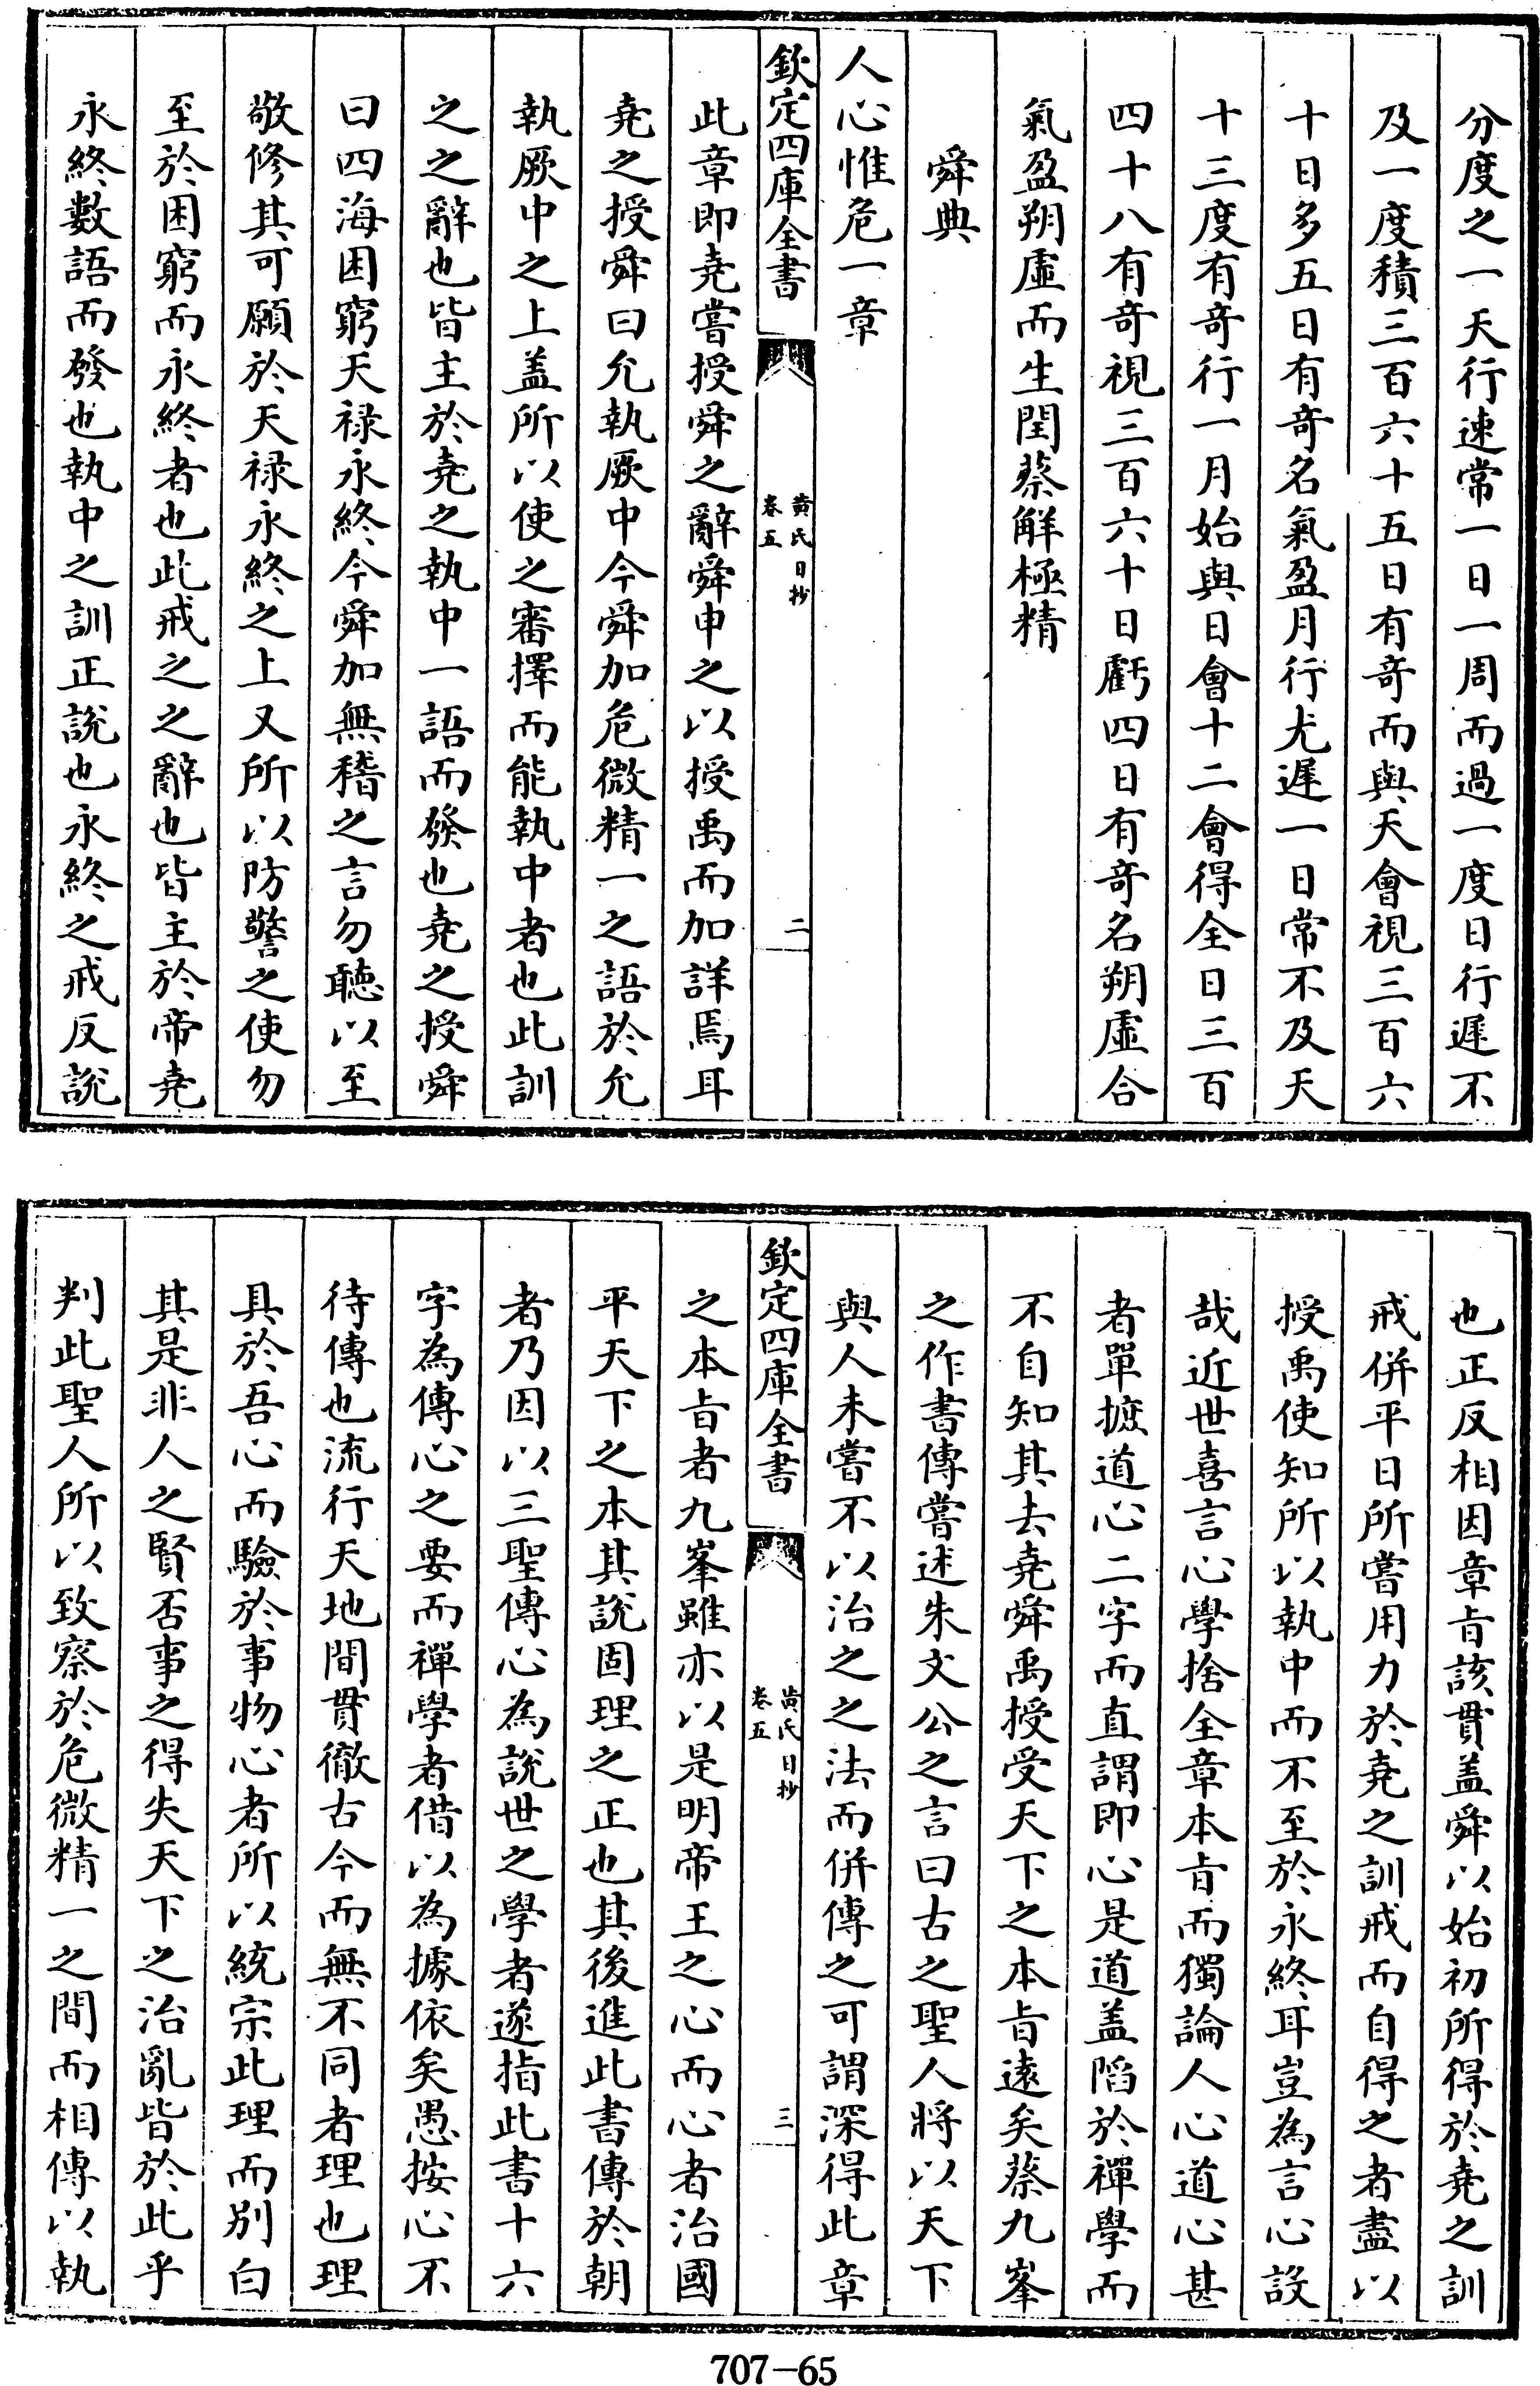 分度之一天行速常一日一周而過一度日行遲不
及一度積三百六十五日有奇而與天會視三百六
十日多五日有奇名氣盈月行尤遲一日常不及天
十三度有奇行一月始與日會十二會得全日三百
四十八有奇視三百六十日虧四日有奇名朔虛合
氣盈朔虛而生閏蔡解極精
舜典
人心惟危一章
欽定四庫全書
黃氏日抄
卷五
二
此章即堯嘗授舜之辭舜申之以授禹而加詳焉耳
堯之授舜曰允執厥中今舜加危微精一之語於允
執厥中之上盖所以使之審擇而能執中者也此訓
之之辭也皆主於堯之執中一語而發也堯之授舜
曰四海困窮天禄永終今舜加無稽之言勿聽以至
敬修其可願於天禄永終之上又所以防警之使勿
至於困窮而永終者也此戒之之辭也皆主於帝堯
永終數語而發也執中之訓正說也永終之戒反說
也正反相因章㫖該貫盖舜以始初所得於堯之訓
戒併平日所嘗用力於堯之訓戒而自得之者盡以
授禹使知所以執中而不至於永終耳豈為言心設
哉近世喜言心學捨全章本㫖而獨論人心道心甚
者單摭道心二字而直謂即心是道盖陷於禪學而
不自知其去堯舜禹授受天下之本㫖遠矣蔡九峯
之作書傳嘗述朱文公之言曰古之聖人將以天下
與人未嘗不以治之之法而併傳之可謂深得此章
欽定四庫全書
黃氏日抄
卷五
三
之本㫖者九峯雖亦以是明帝王之心而心者治國
平天下之本其說固理之正也其後進此書傳於朝
者乃因以三聖傳心為說世之學者遂指此書十六
字為傳心之要而禪學者借以為據依矣愚按心不
待傳也流行天地間貫徹古今而無不同者理也理
具於吾心而驗於事物心者所以統宗此理而别白
其是非人之賢否事之得失天下之治亂皆於此乎
判此聖人所以致察於危微精一之間而相傳以執
707-65